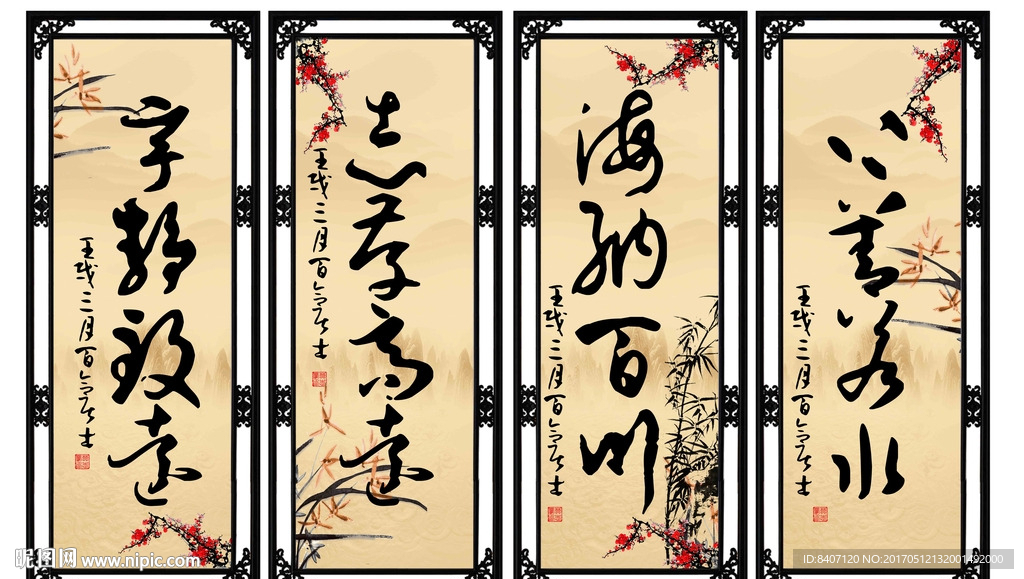 宁静致远
壬戌三月百
居士
志存高远
壬戌三月百
居士
海纳百川
壬戌三月百
居士
上善若水
壬戌三月百
居士
昵图网 www.nipic.com
ID:8407120 NO:20170512132001492000